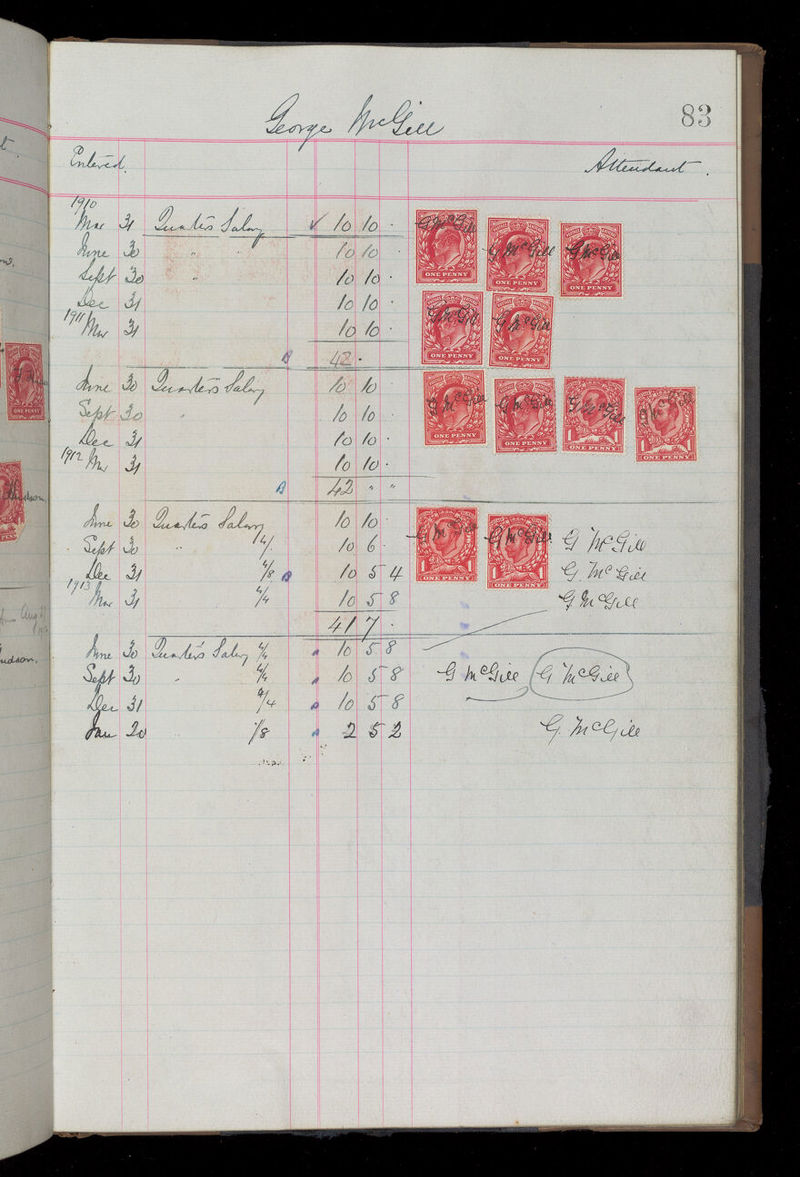 83
George McGill
Entered. Attendant.
1910
Mar 31 Quarters Salary ✓ 10 10 · G McGill G McGill G McGill
June 30 " " 10 10 · ONE PENNY ONE PENNY ONE PENNY
Sept 30 " 10 10 ·
Dec 31 10 10 · G McGill G McGill
1911 Mar 31 10 10 · ONE PENNY ONE PENNY
42 ·
June 30 Quarters Salary 10 10 G McGill G McGill G McGill G McGill
Sept 30 " 10 10 · ONE PENNY ONE PENNY 1 ONE PENNY 1 1 ONE PENNY 1
Dec 31 10 10 ·
1912 Mar 31 10 10 ·
42 " "
June 30 Quarters Salary 10 10 · G McGill G McGill
Sept 30 " 4/. 10 6 · G McGill
Dec 31 4/8 10 5 4 1 ONE PENNY 1 1 ONE PENNY 1 G. McGill
1913 Mar 31 4/4 10 5 8 G McGill
41 7 ·
June 30 Quarter's Salary 4/4 10 5 8
Sept 30 " 4/4 10 5 8 G McGill G McGill
Dec 31 4/4 10 5 8
Jan 20 1/8 2 5 2 G. McGill